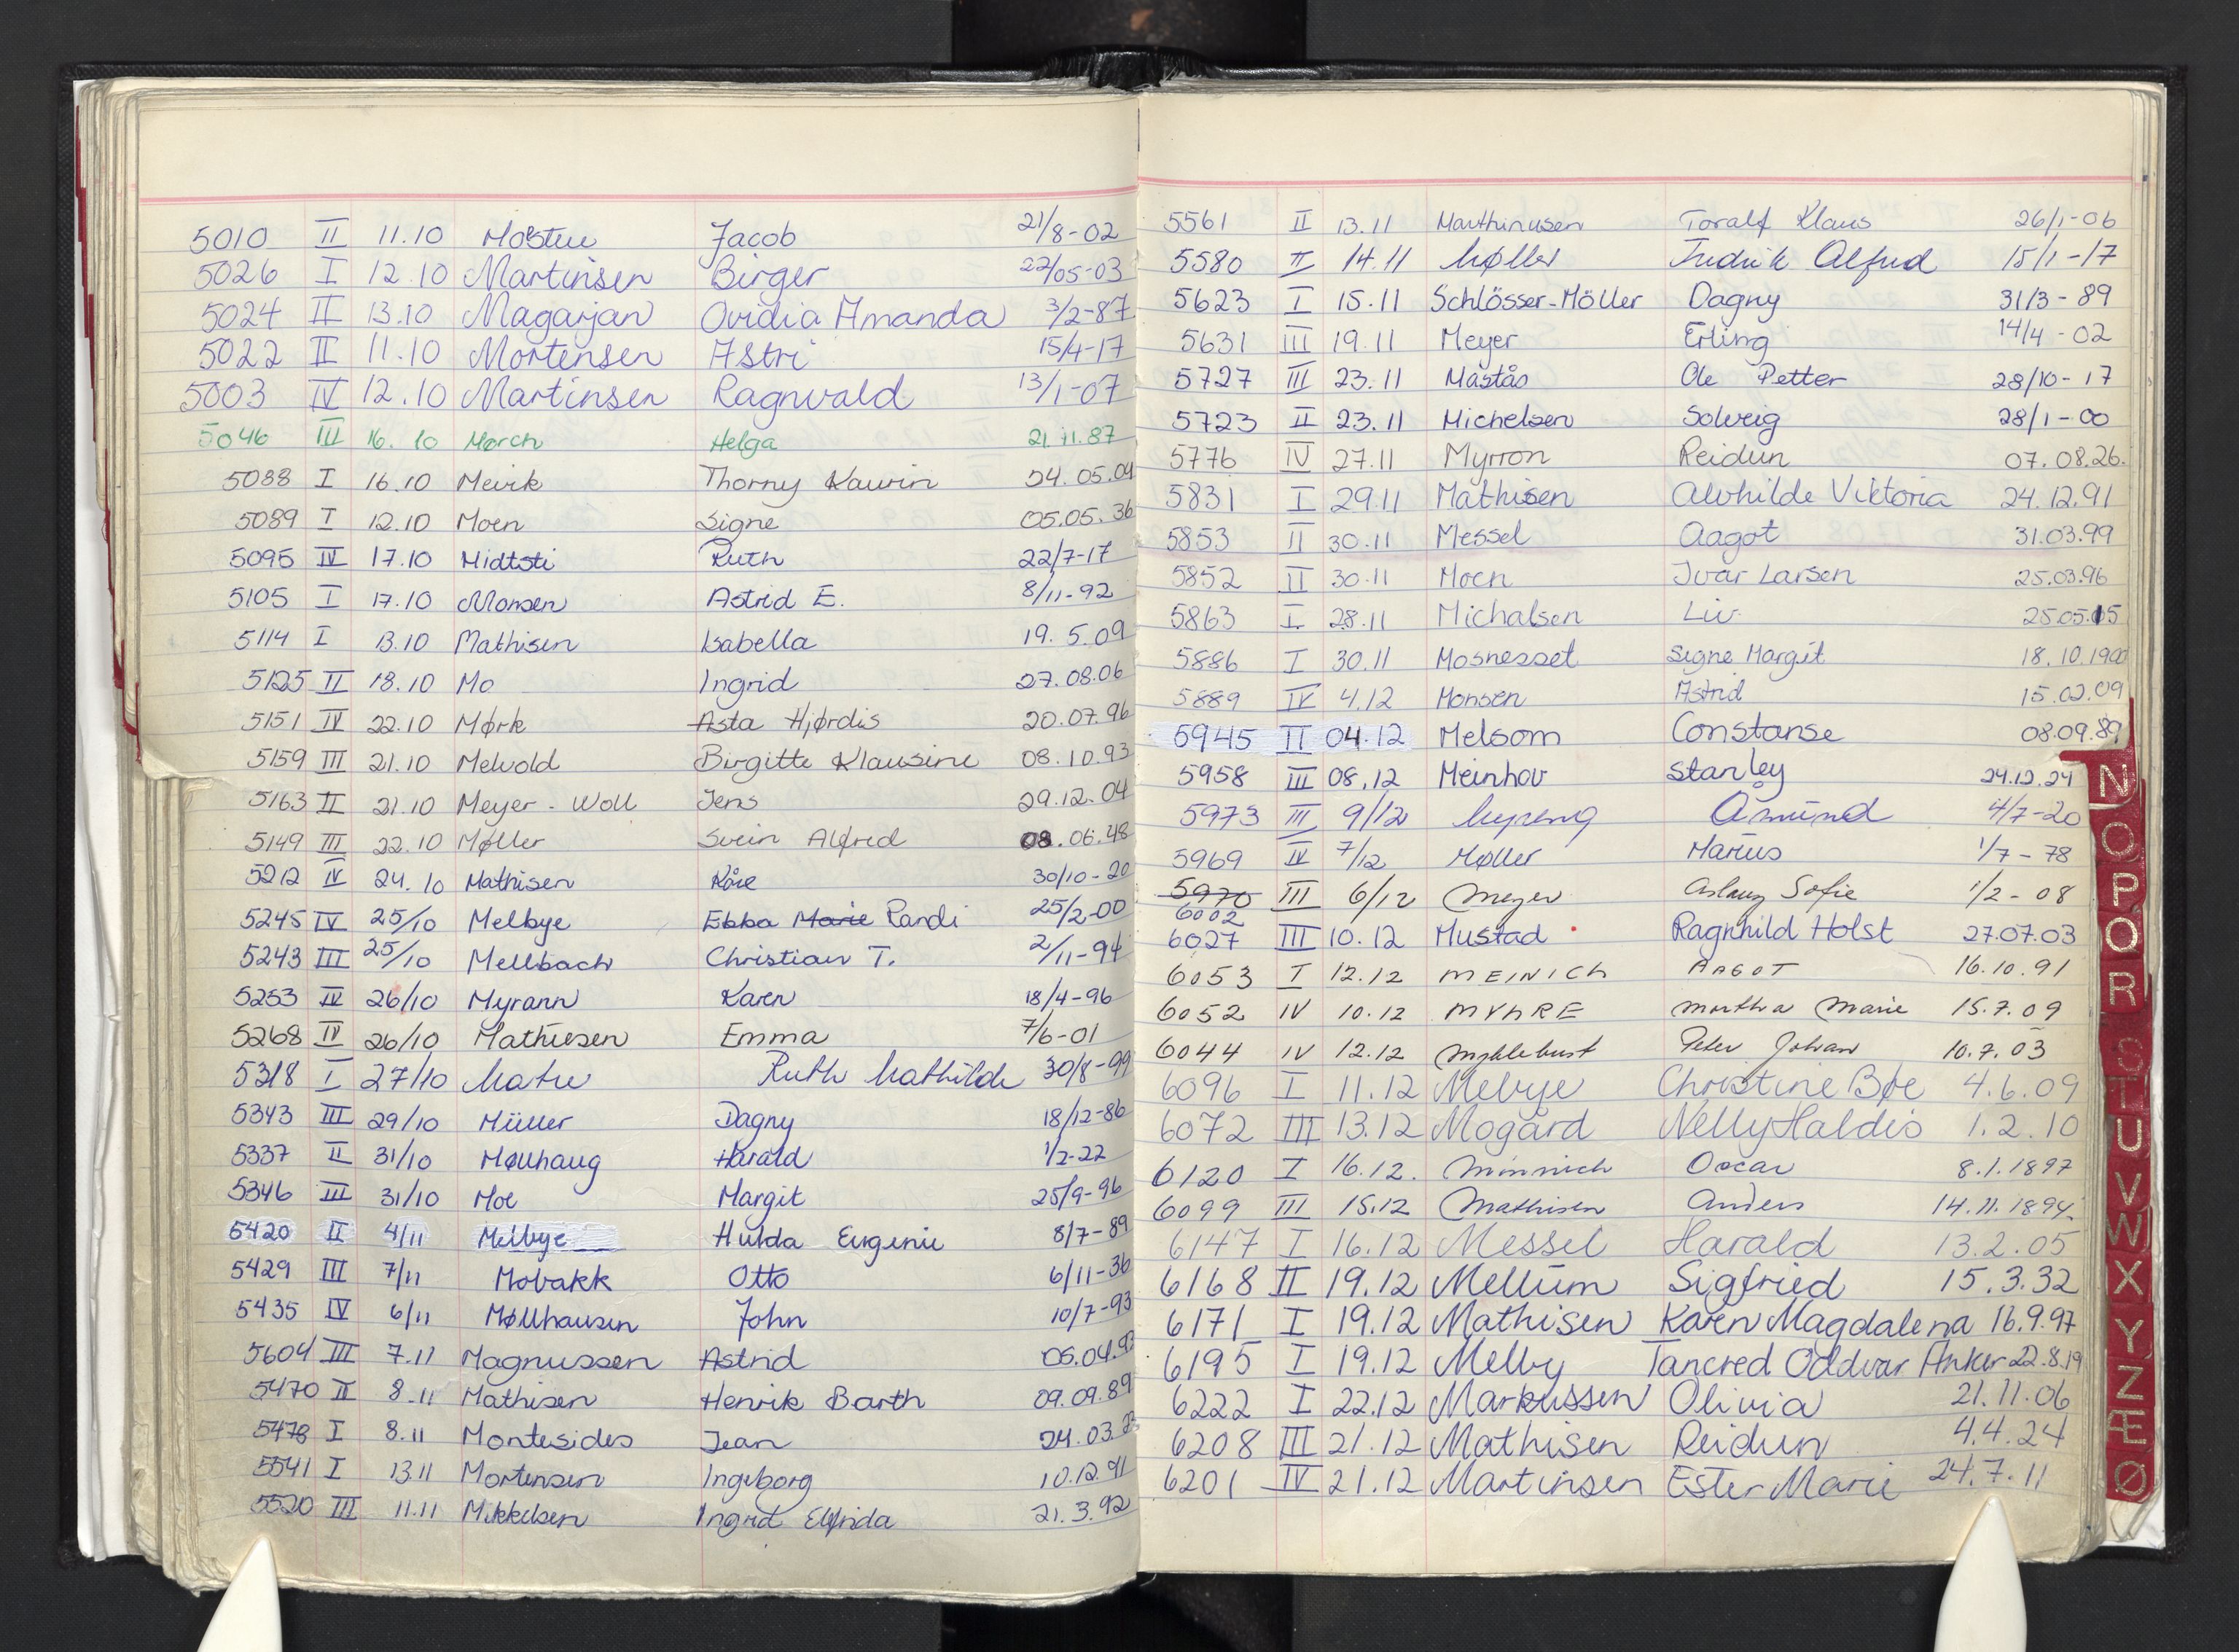 5010 II 11.10 Mostue Jacob 21/8-02
5026 I 12.10 Martinsen Birger 22/05-03
5024 II 13.10 Magarjan Ovidia Amanda 3/2-87
5022 II 11.10 Mortensen Astri 15/4-17
5003 IV 12.10 Martinsen Ragnvald 13/1-07
5046 III 16.10 Mørch Helga 21.11.87
5088 I 16.10 Mevik Thorny Kaurin 24.05.04
5089 I 12.10 Moen Signe 05.05.36
5095 IV 17.10 Midtsti Ruth 22/7-17
5105 I 17.10 Monsen Astrid E. 8/11-92
5114 I 13.10 Mathisen Isabella 19.5.09
5125 II 18.10 Mo Ingrid 27.08.06
5151 IV 22.10 Mørk Asta Hjørdis 20.07.96
5159 III 21.10 Melvold Birgitte Klausine 08.10.93
5163 II 21.10 Meyer-Woll Jens 29.12.04
5149 III 22.10 Møller Svein Alfred 08.06.48
5212 IV 24.10 Mathisen Kåre 30/10-20
5245 IV 25/10 Melbye Ebba Marie Randi 25/2-00
5243 III 25/10 Mellbach Christian T. 2/11-94
5253 IV 26/10 Myrann Karen 18/4-96
5268 IV 26/10 Mathiesen Emma 7/6-01
5318 I 27/10 Matre Ruth Mathilde 30/8-99
5343 III 29/10 Müller Dagny 18/12-86
5337 II 31/10 Møllhaug Harald 1/2-22
5346 III 31/10 Moe Margit 25/9-96
5420 II 4/11 Melbye Hulda Eugenie 8/7-89
5429 III 7/11 Mobakk Otto 6/11-36
5435 IV 6/11 Møllhausen John 10/7-93
5604 III 7.11 Magnussen Astrid 06.04.92
5470 II 8.11 Mathisen Henrik Barth 09.09.89
5478 I 8.11 Montesides Jean 24.03.23
5541 I 13.11 Mortensen Ingeborg 10.12.91
5520 III 11.11 Mikkelsen Ingrid Elfrida 21.3.92
5561 II 13.11 Marthinusen Toralf Klaus 26/1-06
5580 II 14.11 Møller Fredrik Alfred 15/1-17
5623 I 15.11 Schlösser-Möller Dagny 31/3-89
5631 III 19.11 Meyer Erling 14/4-02
5727 III 23.11 Måstås Ole Petter 28/10-17
5723 II 23.11 Michelsen Solveig 28/1-00
5776 IV 27.11 Myrron Reidun 07.08.26.
5831 I 29.11 Mathisen Alvhilde Viktoria 24.12.91
5853 II 30.11 Messel Aagot 31.03.99
5852 II 30.11 Moen Ivar Larsen 25.03.96
5863 I 28.11 Michalsen Liv 25.05.15
5886 I 30.11 Mosnesset Signe Margit 18.10.1900
5889 IV 4.12 Monsen Astrid 15.02.09
5945 II 04.12 Melsom Constanse 08.09.89
5958 III 08.12 Meinhov Stanley 24.12.24
5973 III 9/12 Myreng Åmund 4/7-20
5969 IV 7/12 Møller Marius 1/7-78
5970 III 6/12 Meyer Aslaug Sofie 1/2-08
6002
6027 III 10.12 Mustad Ragnhild Holst 27.07.03
6053 I 12.12 MEINICH AAGOT 16.10.91
6052 IV 10.12 MYHRE Martha Marie 15.7.09
6044 IV 12.12 Myklebust Peter Johan 10.7.03
6096 I 11.12 Mebye Christine Bøe 4.6.09
6072 III 13.12 Mogård Nelly Haldis 1.2.10
6120 I 16.12. Minnich Oscar 8.1.1897
6099 III 15.12 Mathisen Anders 14.11.1894.
6147 I 16.12 Messel Harald 13.2.05
6168 II 19.12 Mellum Sigfried 15.3.32
6171 I 19.12 Mathisen Karen Magdalena 16.9.97
6195 I 19.12 Melby Tancred Oddvar Anker 22.8.19
6222 I 22.12 Markussen Olivia 21.11.06
6208 III 21.12 Mathisen Reidun 4.4.24
6201 IV 21.12 Martinsen Ester Marie 24.7.11
N
O
P
Q
R
S
T
U
V
W
X
Y
Z
Æ
Ø